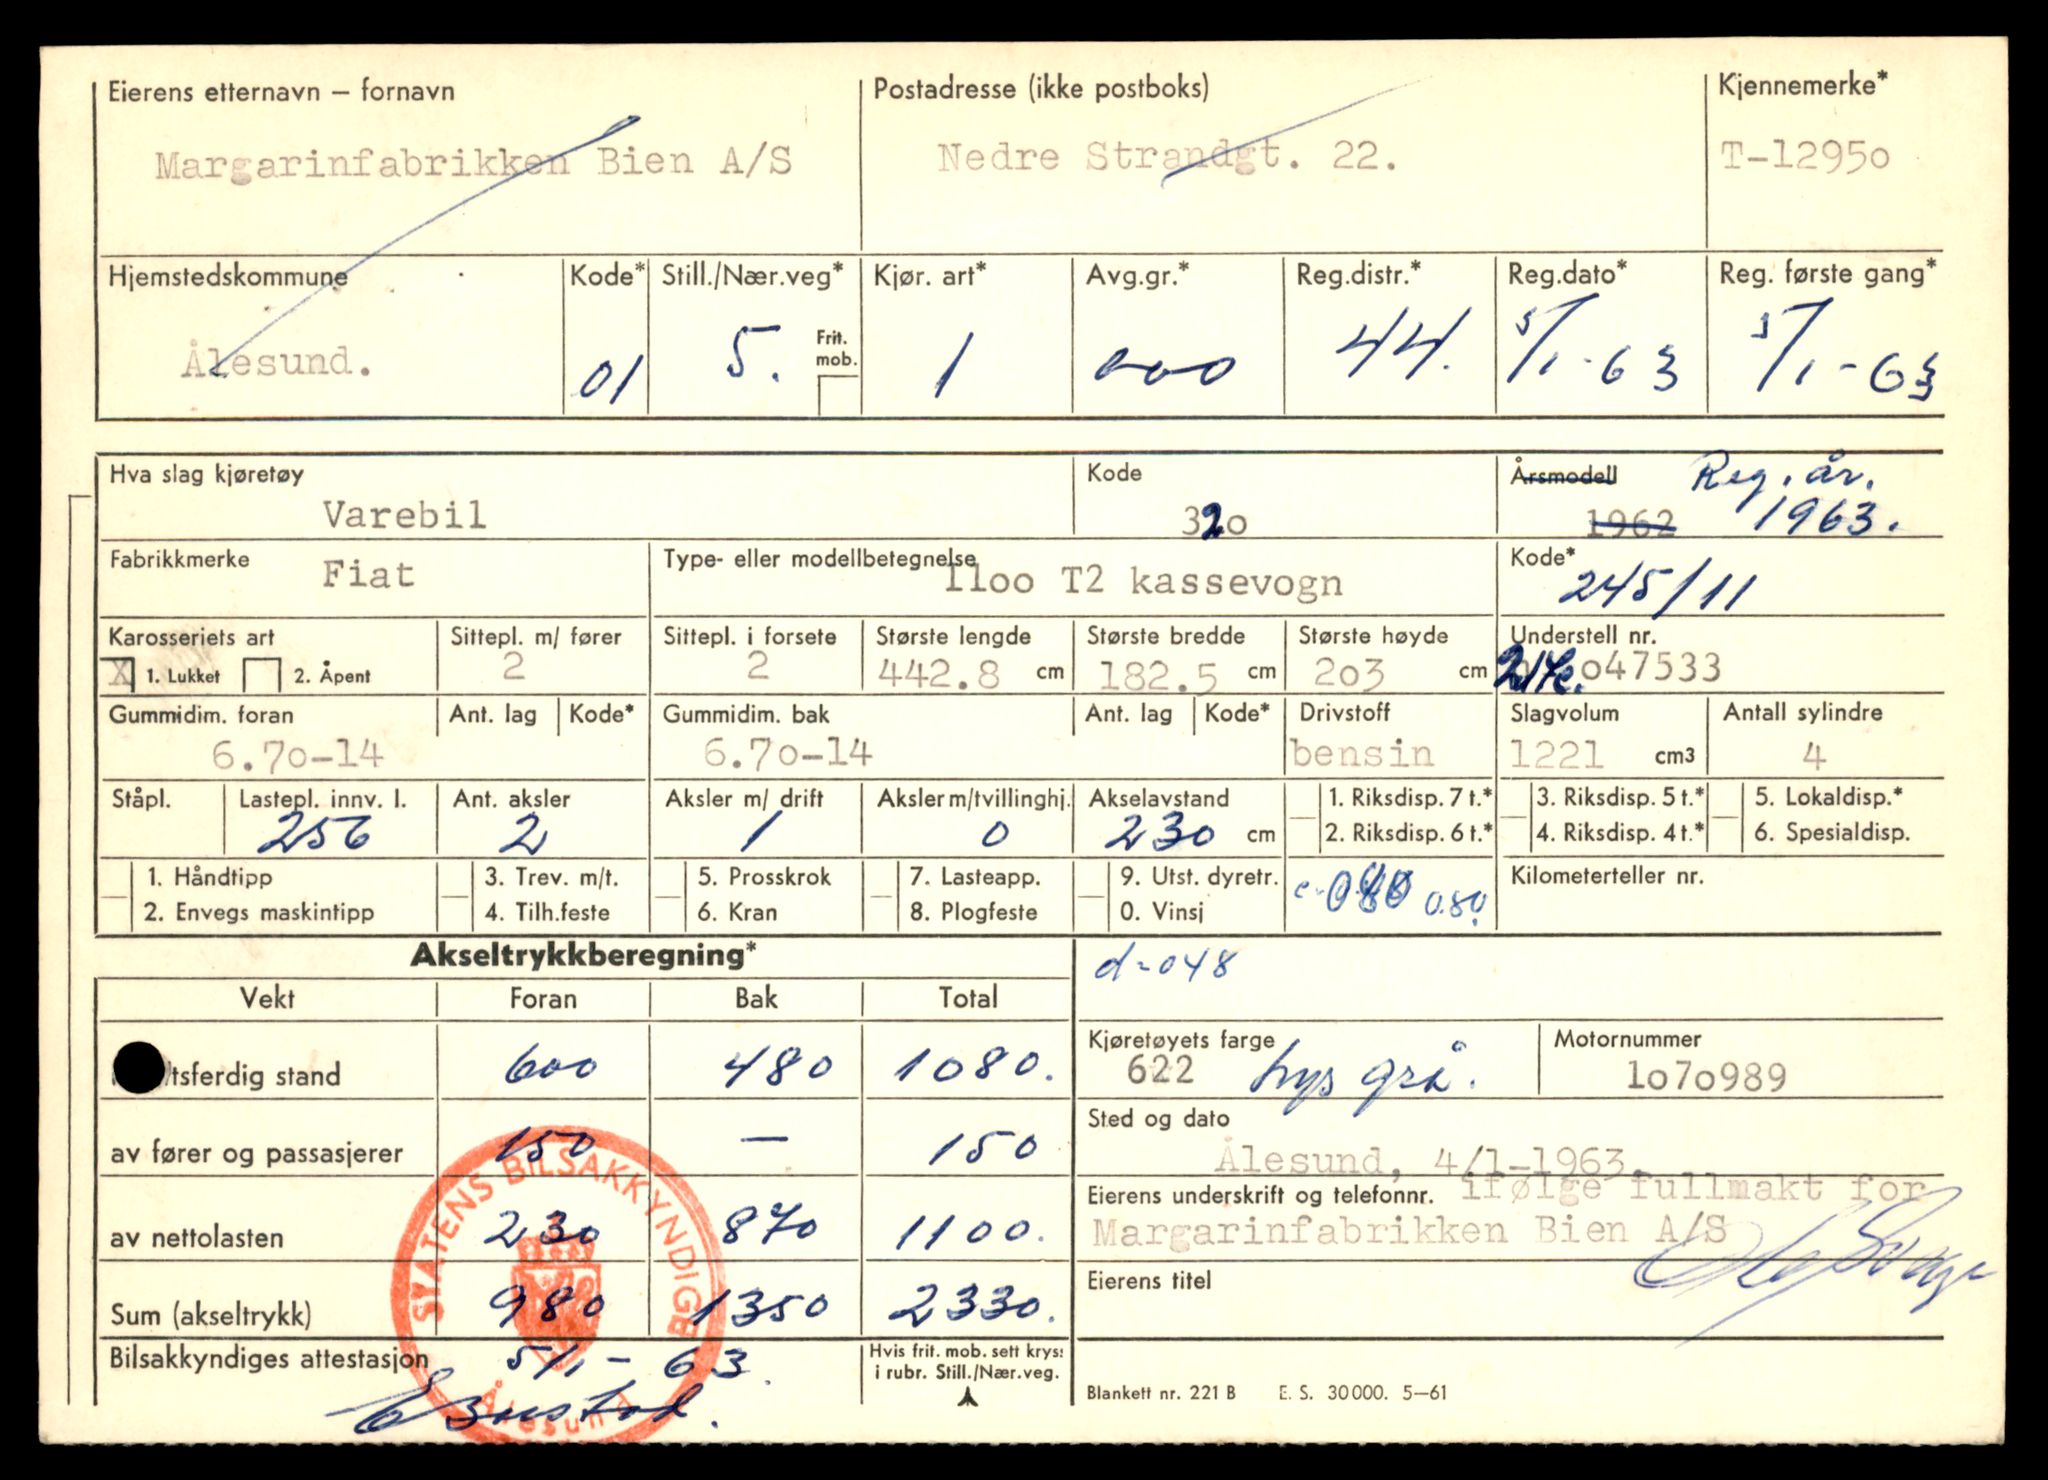 Eierens etternavn – fornavn
Postadresse (ikke postboks)
Kjennemerke*
Margarinfabrikken Bien A/S
Nedre Strandgt. 22.
T-1295o
Hjemstedskommune
Kode*
Still./Nær.veg*
Kjør. art*
Avg.gr.*
Reg.distr.*
Reg.dato*
Reg. første gang*
Ålesund.
01
5.
Frit. mob.
1
000
44.
5/1-63
5/1-63
Hva slag kjøretøy
Kode
Årsmodell
Reg. år.
Varebil
32o
1962
1963.
Fabrikkmerke
Type- eller modellbetegnelse
Kode*
Fiat
11oo T2 kassevogn
245/11
Karosseriets art
Sittepl. m/ fører
Sittepl. i forsete
Største lengde
Største bredde
Største høyde
Understell nr.
X 1. Lukket
2. Åpent
2
2
442.8 cm
182.5 cm
2o3 cm
o47533
Gummidim. foran
Ant. lag
Kode*
Gummidim. bak
Ant. lag
Kode*
Drivstoff
Slagvolum
Antall sylindre
6.7o-14
6.7o-14
bensin
1221 cm3
4
Ståpl.
Lastepl. innv. l.
Ant. aksler
Aksler m/ drift
Aksler m/tvillinghj.
Akselavstand
1. Riksdisp. 7 t.*
3. Riksdisp. 5 t.*
5. Lokaldisp.*
256
2
1
0
230 cm
2. Riksdisp. 6 t.*
4. Riksdisp. 4 t.*
6. Spesialdisp.
1. Håndtipp
3. Trev. m/t.
5. Prosskrok
7. Lasteapp.
9. Utst. dyretr.
Kilometerteller nr.
2. Envegs maskintipp
4. Tilh.feste
6. Kran
8. Plogfeste
0. Vinsj
080
0.80
Akseltrykkberegning*
d=048
Vekt
Foran
Bak
Total
tsferdig stand
600
480
1080.
Kjøretøyets farge
Motornummer
622
lys grå.
1o7o989
av fører og passasjerer
150
—
150
Sted og dato
Ålesund, 4/1-1963.
av nettolasten
230
870
1100.
Eierens underskrift og telefonnr.
ifølge fullmakt for
Margarinfabrikken Bien A/S
Sum (akseltrykk)
980
1350
2330.
Eierens titel
Bilsakkyndiges attestasjon
5/1-63.
Hvis frit. mob. sett kryss
i rubr. Still./Nær.veg.
STATENS BILSAKKYNDIGE
Ålesund
Blankett nr. 221 B
E. S. 30000. 5–61